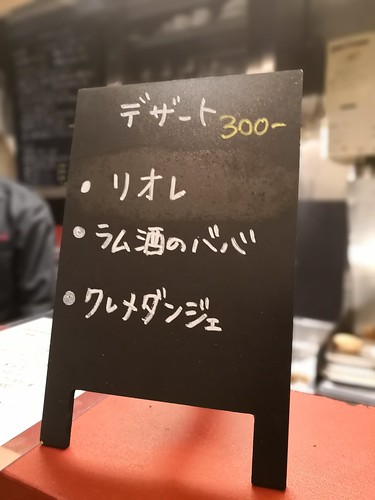 デザート 300-
• リオレ
• ラム酒のババ
• クレメダンジェ